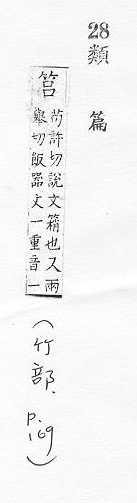 28
類篇
筥 苟許切說文箱也又兩
舉切飯器文一重音一
(竹部, P.169)